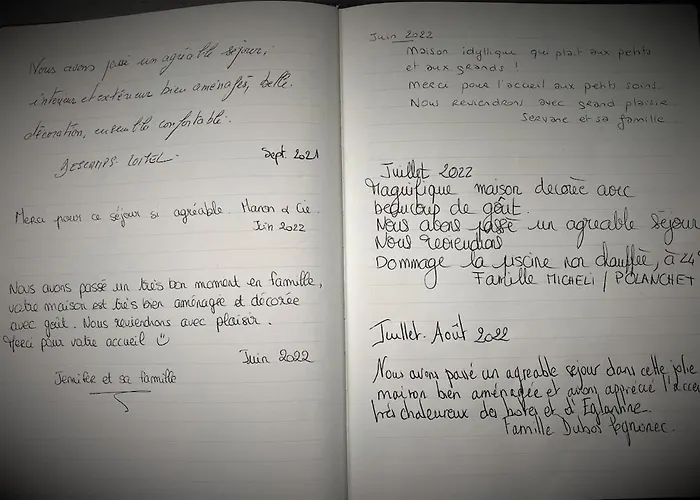 Nous avons passé un agréable séjour,
interieur et extérieur bien aménagés, belle
décoration, ensemble confortable.
Sept. 2021
Merci pour ce séjour si agréable. & Cie
Juin 2022
Nous avons passé un très bon moment en famille,
votre maison est très bien aménagée et décorée
avec goût. Nous reviendrons avec plaisir.
Merci pour votre accueil ☺
Juin 2022
Jennifer et sa famille
Juin 2022
Maison idyllique qui plait aux petits
et aux grands !
Merci pour l'accueil aux petits soins.
Nous reviendrons avec grand plaisir.
Servane et sa famille
Juillet 2022
Magnifique maison decorée avec
beaucoup de goût.
Nous avons passé un agreable séjour
Nous reviendrons
Dommage la piscine non chauffée, à 24°
Famille MICHELI / POLANCHET
Juillet. Août 2022
Nous avons passé un agreable sejour dans cette jolie
maison bien aménagée et avons apprécié l'accue
très chaleureux des hotes et d'Eglantine.
Famille Dubos